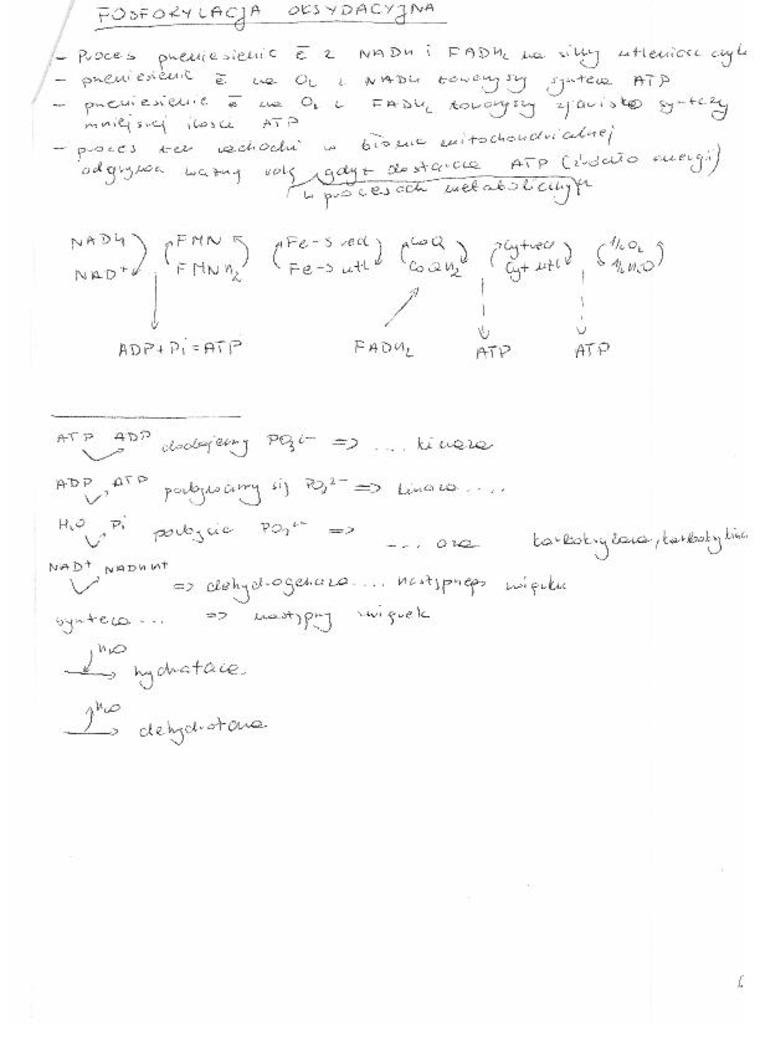 FOSFORYLACJA OKSYDACYJNA
- Proces przeniesienie ē z NADH i FADH₂ na silny utleniacz czyli
- przeniesienie ē na O₂ z NADH towarzyszy synteza ATP
- przeniesienie ē na O₂ z FADH₂ towarzyszy zjawisko syntezy
mniejszej ilości ATP
- proces ten zachodzi w błonie mitochondrialnej
odgrywa ważną rolę gdyż dostarcza ATP (źródło energii)
w procesach metabolicznych
NADH FMN Fe-S red CoQ Cyt red ½O₂
NAD⁺ FMNH₂ Fe-S utl CoQH₂ Cyt utl ½H₂O
ADP+Pi=ATP FADH₂ ATP ATP
ATP ADP dodajemy PO₃²⁻ => .... kinaza
ADP, ATP pozbywamy się PO₃²⁻ => kinaza ....
H₂O, Pi pozbycie PO₃²⁻ => .... aza karboksylaza,
NAD⁺ NADH+H⁺ => dehydrogenaza .... następnego związku
synteza ... => następny związek
H₂O
→ hydrataza
H₂O
→ dehydrataza